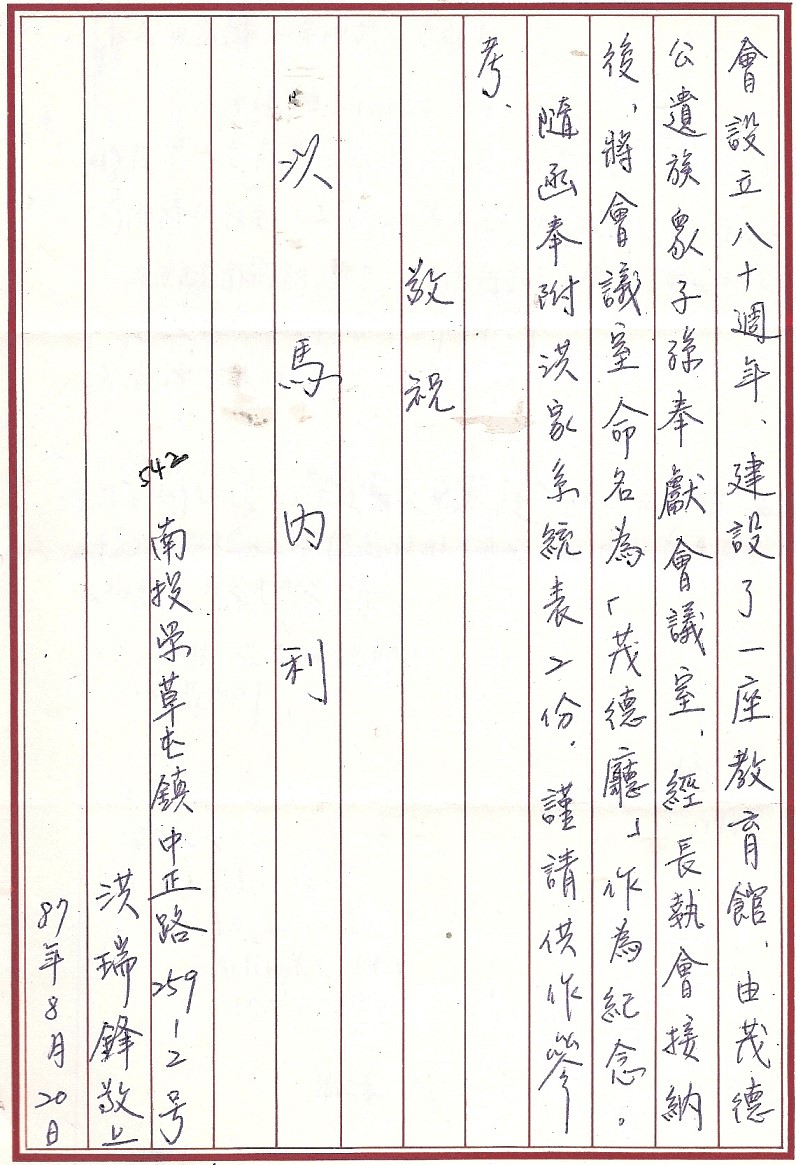 會設立八十週年、建設了一座教育館、由茂德
公遺族眾子孫奉獻會議室、經長執會接納
後、將會議室命名為「茂德廳」作為紀念。
隨函奉附洪家系統表2份．謹請供作參
考、
敬祝
以馬內利
542
南投県草屯鎮中正路259-2号
洪瑞鋒敬上
87年8月20日